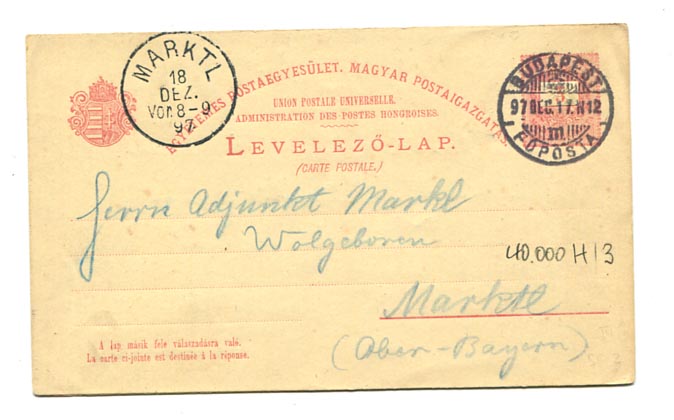 MARKTL
18
DEZ.
Vor. 8-9
97
EGYETEMES POSTAEGYESÜLET. MAGYAR POSTAIGAZGATÁS.
UNION POSTALE UNIVERSELLE.
ADMINISTRATION DES POSTES HONGROISES.
LEVELEZŐ-LAP.
(CARTE POSTALE.)
BUDAPEST
97 DEC. 17. N12
m.
FŐPOSTA
Herrn Adjunkt Markl
Wolgeboren
40.000 H/3
Marktl
(Ober-Bayern)
A lap másik fele válaszadásra való.
La carte ci-jointe est destinée à la réponse.